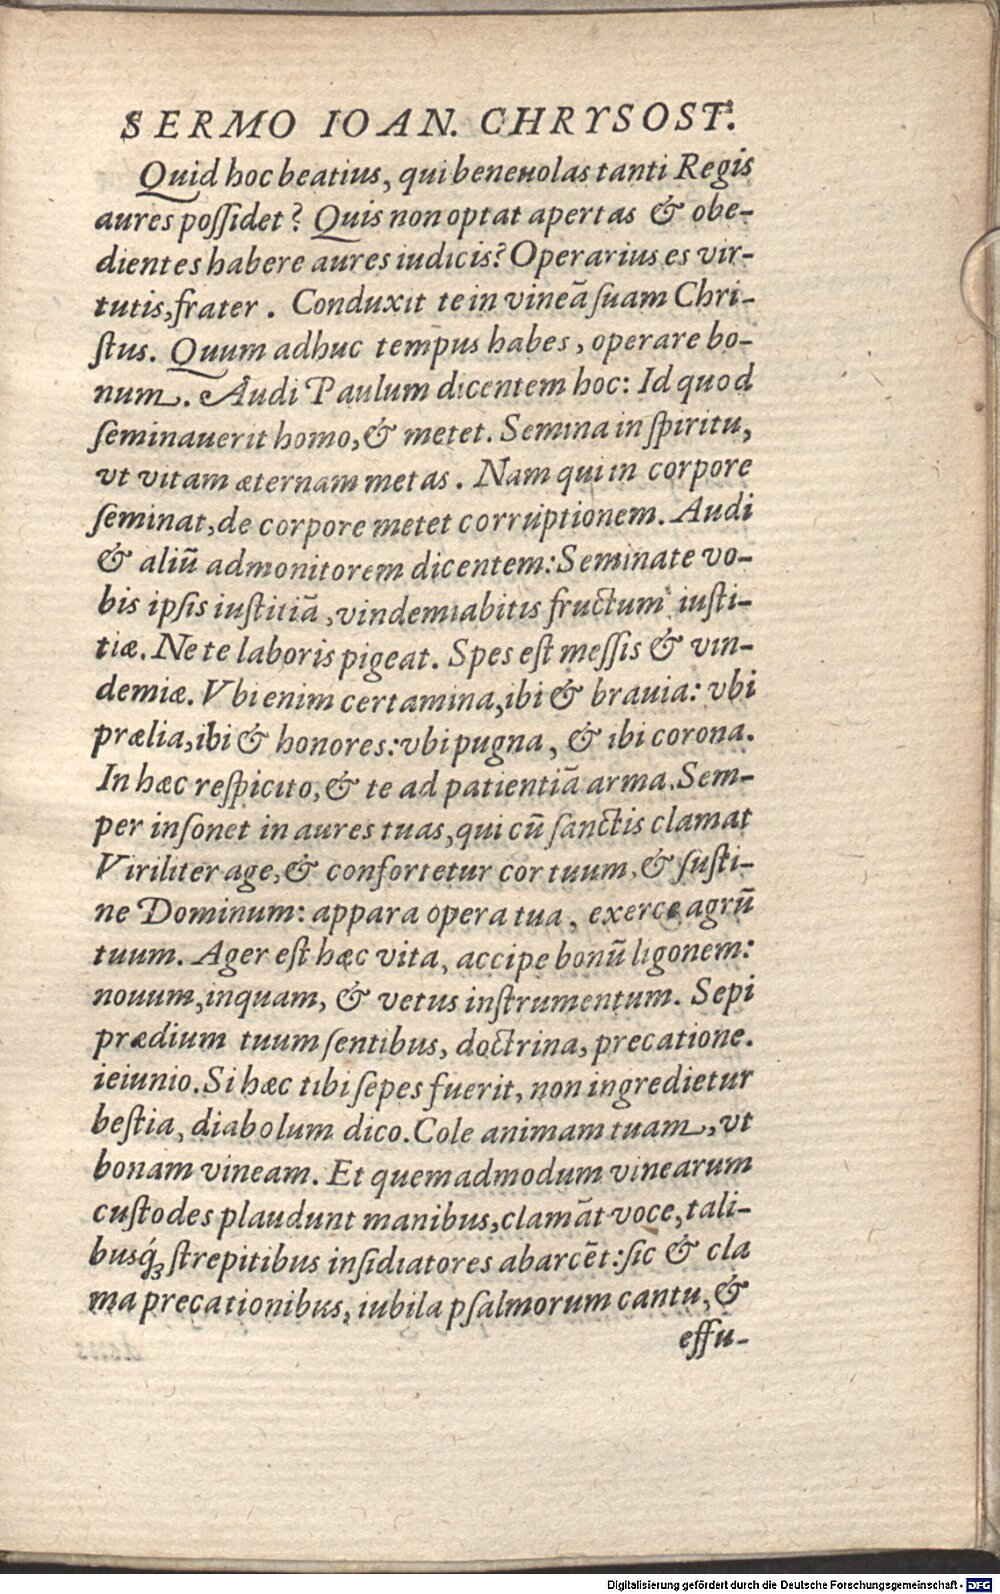 SERMO IOAN. CHRYSOST.
Quid hoc beatius, qui beneuolas tanti Regis
aures possidet? Quis non optat apertas & obe-
dientes habere aures iudicis? Operarius es vir-
tutis, frater. Conduxit te in vineā suam Chri-
stus. Quum adhuc tempus habes, operare bo-
num. Audi Paulum dicentem hoc: Id quod
seminauerit homo, & metet. Semina in spiritu,
vt vitam æternam metas. Nam qui in corpore
seminat, de corpore metet corruptionem. Audi
& aliū admonitorem dicentem: Seminate vo-
bis ipsis iustitiā, vindemiabitis fructum iusti-
tiæ. Ne te laboris pigeat. Spes est messis & vin-
demiæ. Vbi enim certamina, ibi & brauia: vbi
prælia, ibi & honores: vbi pugna, & ibi corona.
In hæc respicito, & te ad patientiā arma. Sem-
per insonet in aures tuas, qui cū sanctis clamat
Viriliter age, & confortetur cor tuum, & susti-
ne Dominum: appara opera tua, exerce agrū
tuum. Ager est hæc vita, accipe bonū ligonem:
nouum, inquam, & vetus instrumentum. Sepi
prædium tuum sentibus, doctrina, precatione.
ieiunio. Si hæc tibi sepes fuerit, non ingredietur
bestia, diabolum dico. Cole animam tuam, vt
bonam vineam. Et quemadmodum vinearum
custodes plaudunt manibus, clamāt voce, tali-
busq́ꝫ strepitibus insidiatores abarcēt: sic & cla
ma precationibus, iubila psalmorum cantu, &
effu-
Digitalisierung gefördert durch die Deutsche Forschungsgemeinschaft - DFG